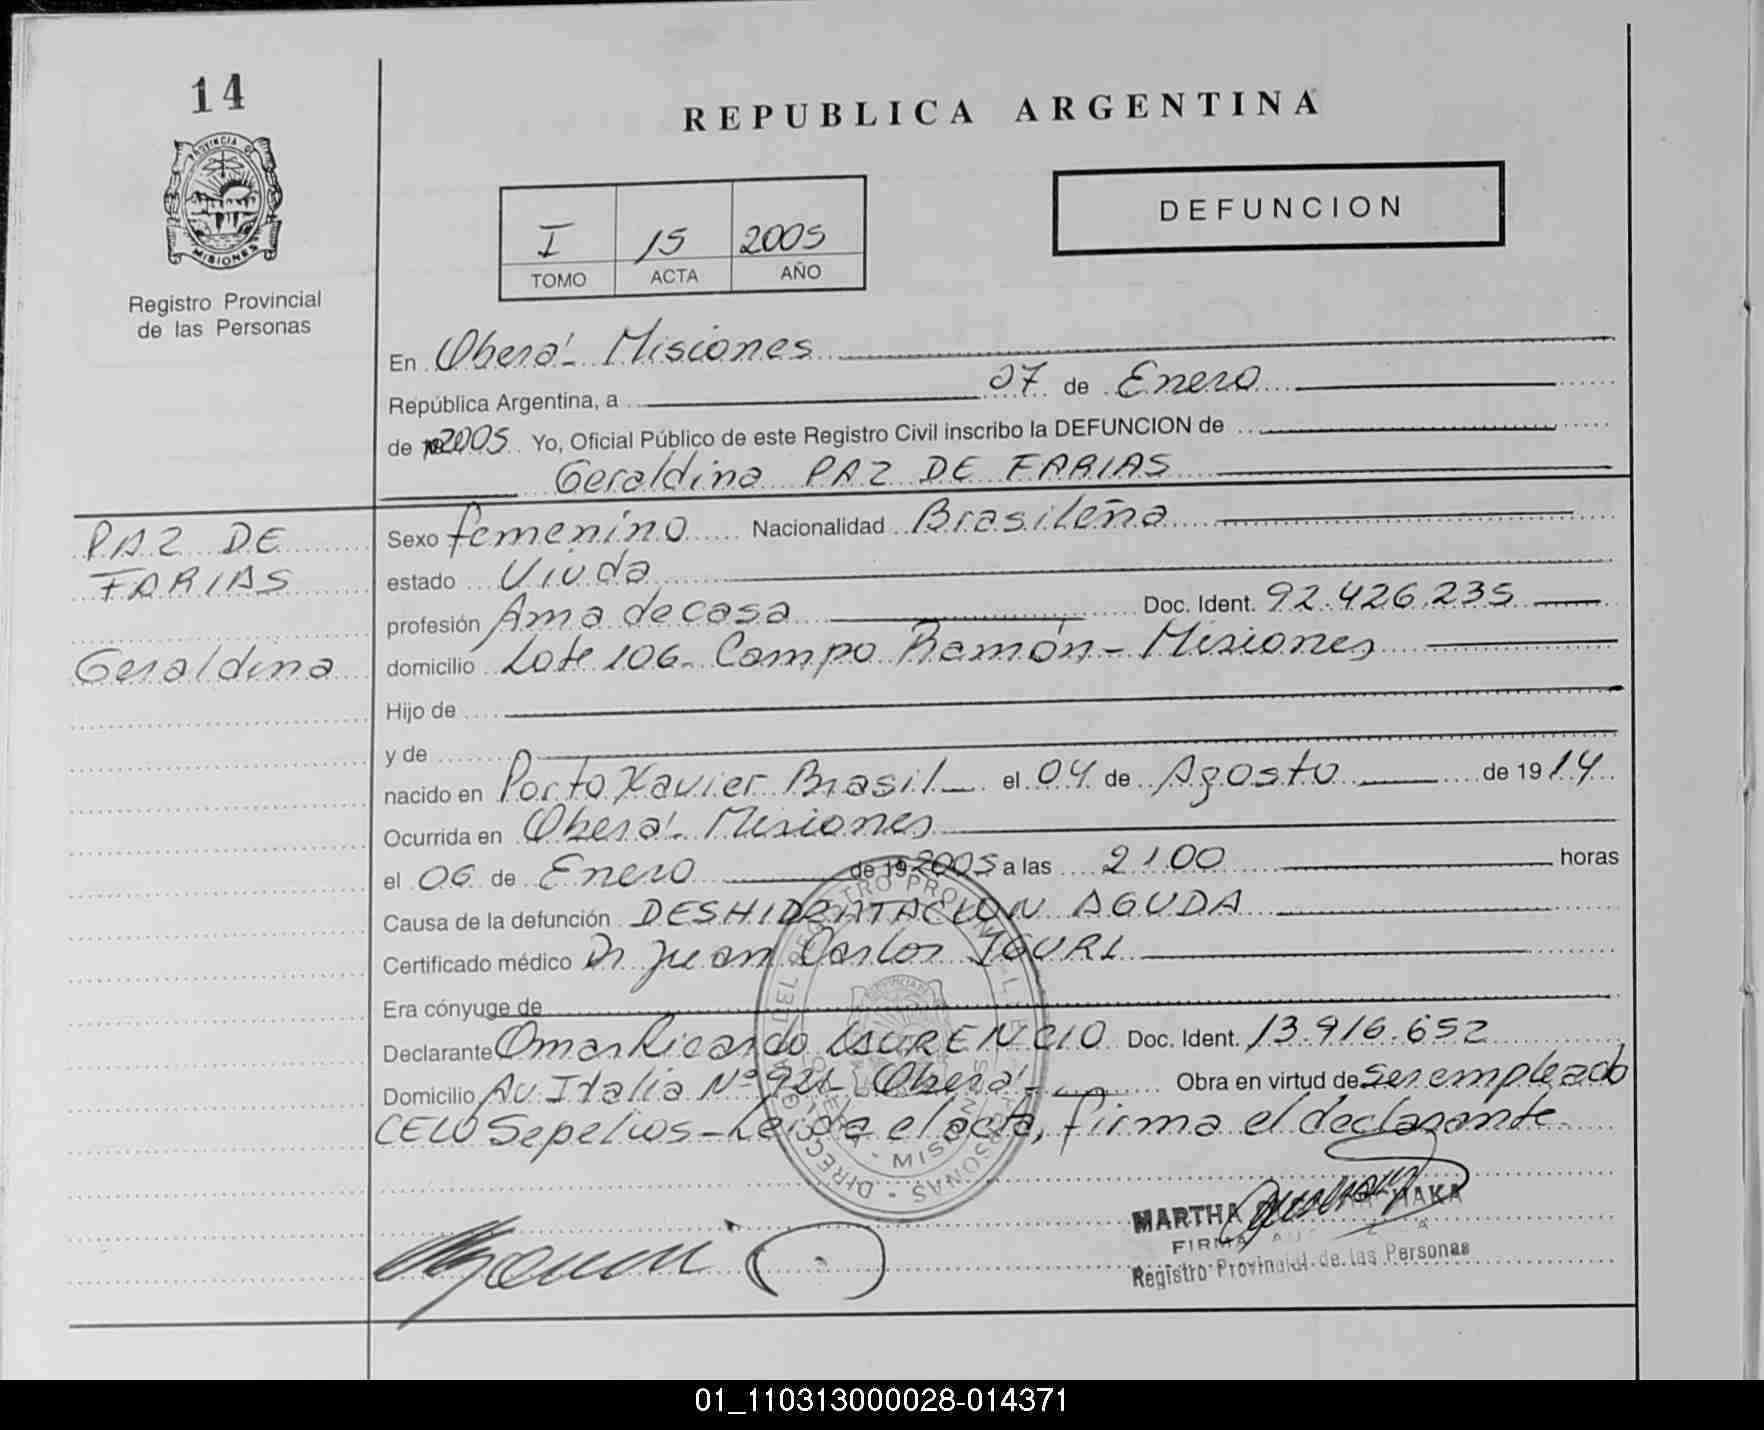 14
PROVINCIA DE
MISIONES
Registro Provincial
de las Personas
REPUBLICA ARGENTINA
I 15 2005
TOMO ACTA AÑO
DEFUNCION
En Oberá - Misiones
República Argentina, a 07 de Enero
de 2005 Yo, Oficial Público de este Registro Civil inscribo la DEFUNCION de
Geraldina PAZ DE FARIAS
PAZ DE
FARIAS
Geraldina
Sexo femenino Nacionalidad Brasileña
estado Viuda
profesión Ama de casa Doc. Ident. 92.426.235
domicilio Lote 106 - Campo Ramón - Misiones
Hijo de
y de
nacido en Porto Xavier Brasil el 04 de Agosto de 1914
Ocurrida en Oberá - Misiones
el 06 de Enero de 19 2005 a las 21.00 horas
Causa de la defunción DESHIDRATACION AGUDA
Certificado médico Dr Juan Carlos
Era cónyuge de
Declarante Omar Ricardo LAURENCIO Doc. Ident. 13.916.652
Domicilio Av. Italia Nº Oberá - Obra en virtud de ser empleado
Sepelios - Leída el acta, firma el declarante
MARTHA
FIRMA
Registro Provincial de las Personas
01_110313000028-014371